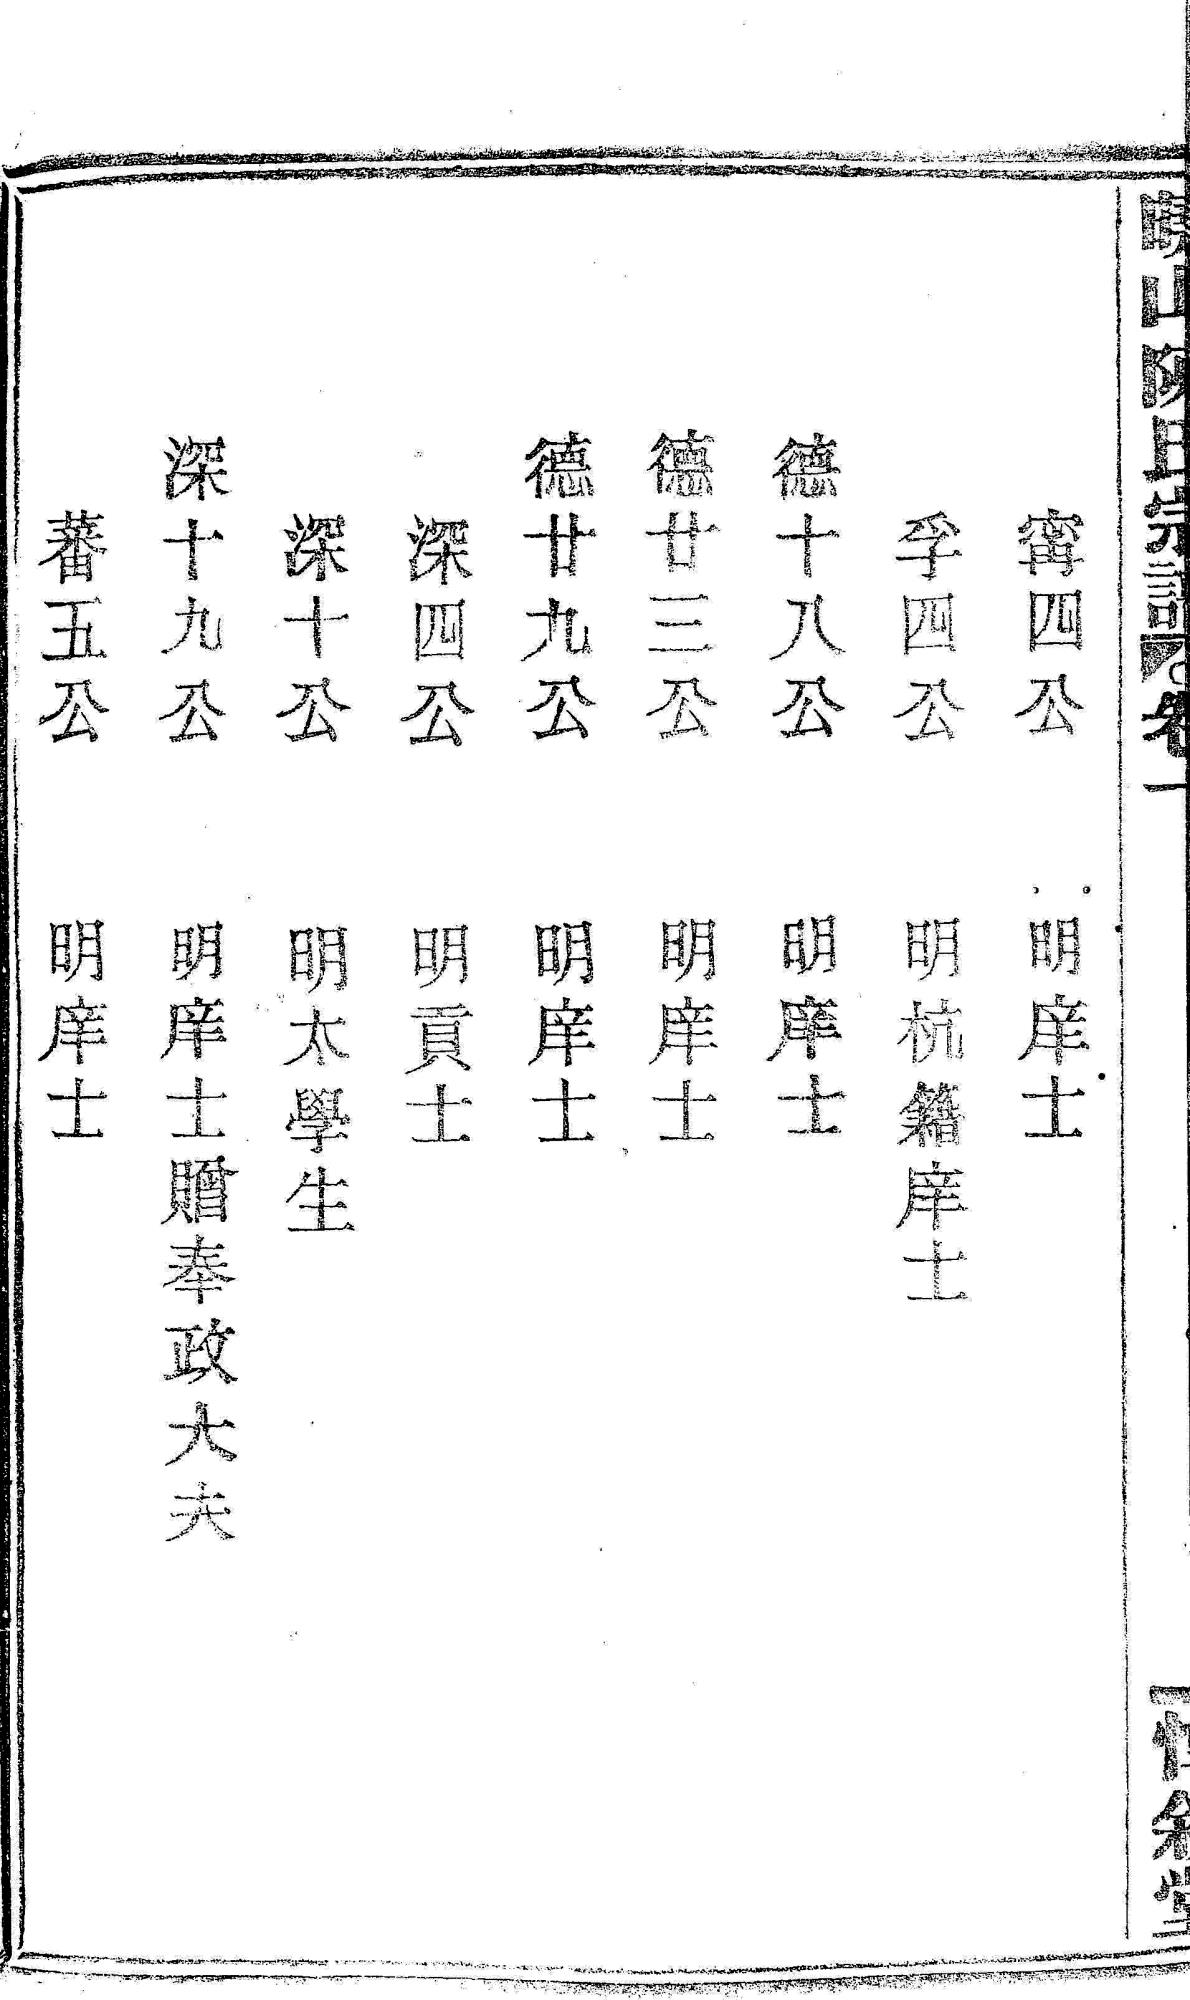 山陳氏宗譜 卷一 堂
甯四公 明庠士
孚四公 明杭籍庠士
德十八公 明庠士
德廿三公 明庠士
德廿九公 明庠士
深四公 明貢士
深十公 明太學生
深十九公 明庠士贈奉政大夫
蕃五公 明庠士